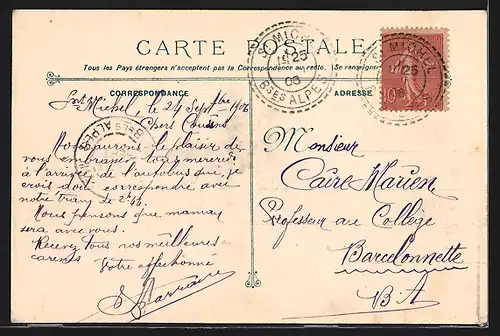 CARTE POSTALE
Tous les Pays étrangers n'acceptent pas la Correspondance au recto. (Se renseigner
CORRESPONDANCE
ADRESSE
St Michel, le 24 Septbre 1906
Chers Cousins
Nous aurons le plaisir de
vous embrasser tout mercredi
à l'arrivée de l'autobus qui, je
crois doit correspondre avec
notre train de 2h45.
Nous pensons que maman
sera avec vous.
Recevez tous nos meilleures
caresses
Votre affectionné
Monsieur
Caire Marien
Professeur au Collège
Barcelonnette
B. A
ST MICHEL
25
06
BSES ALPES
ST MICHEL
25
10
BSES ALPES